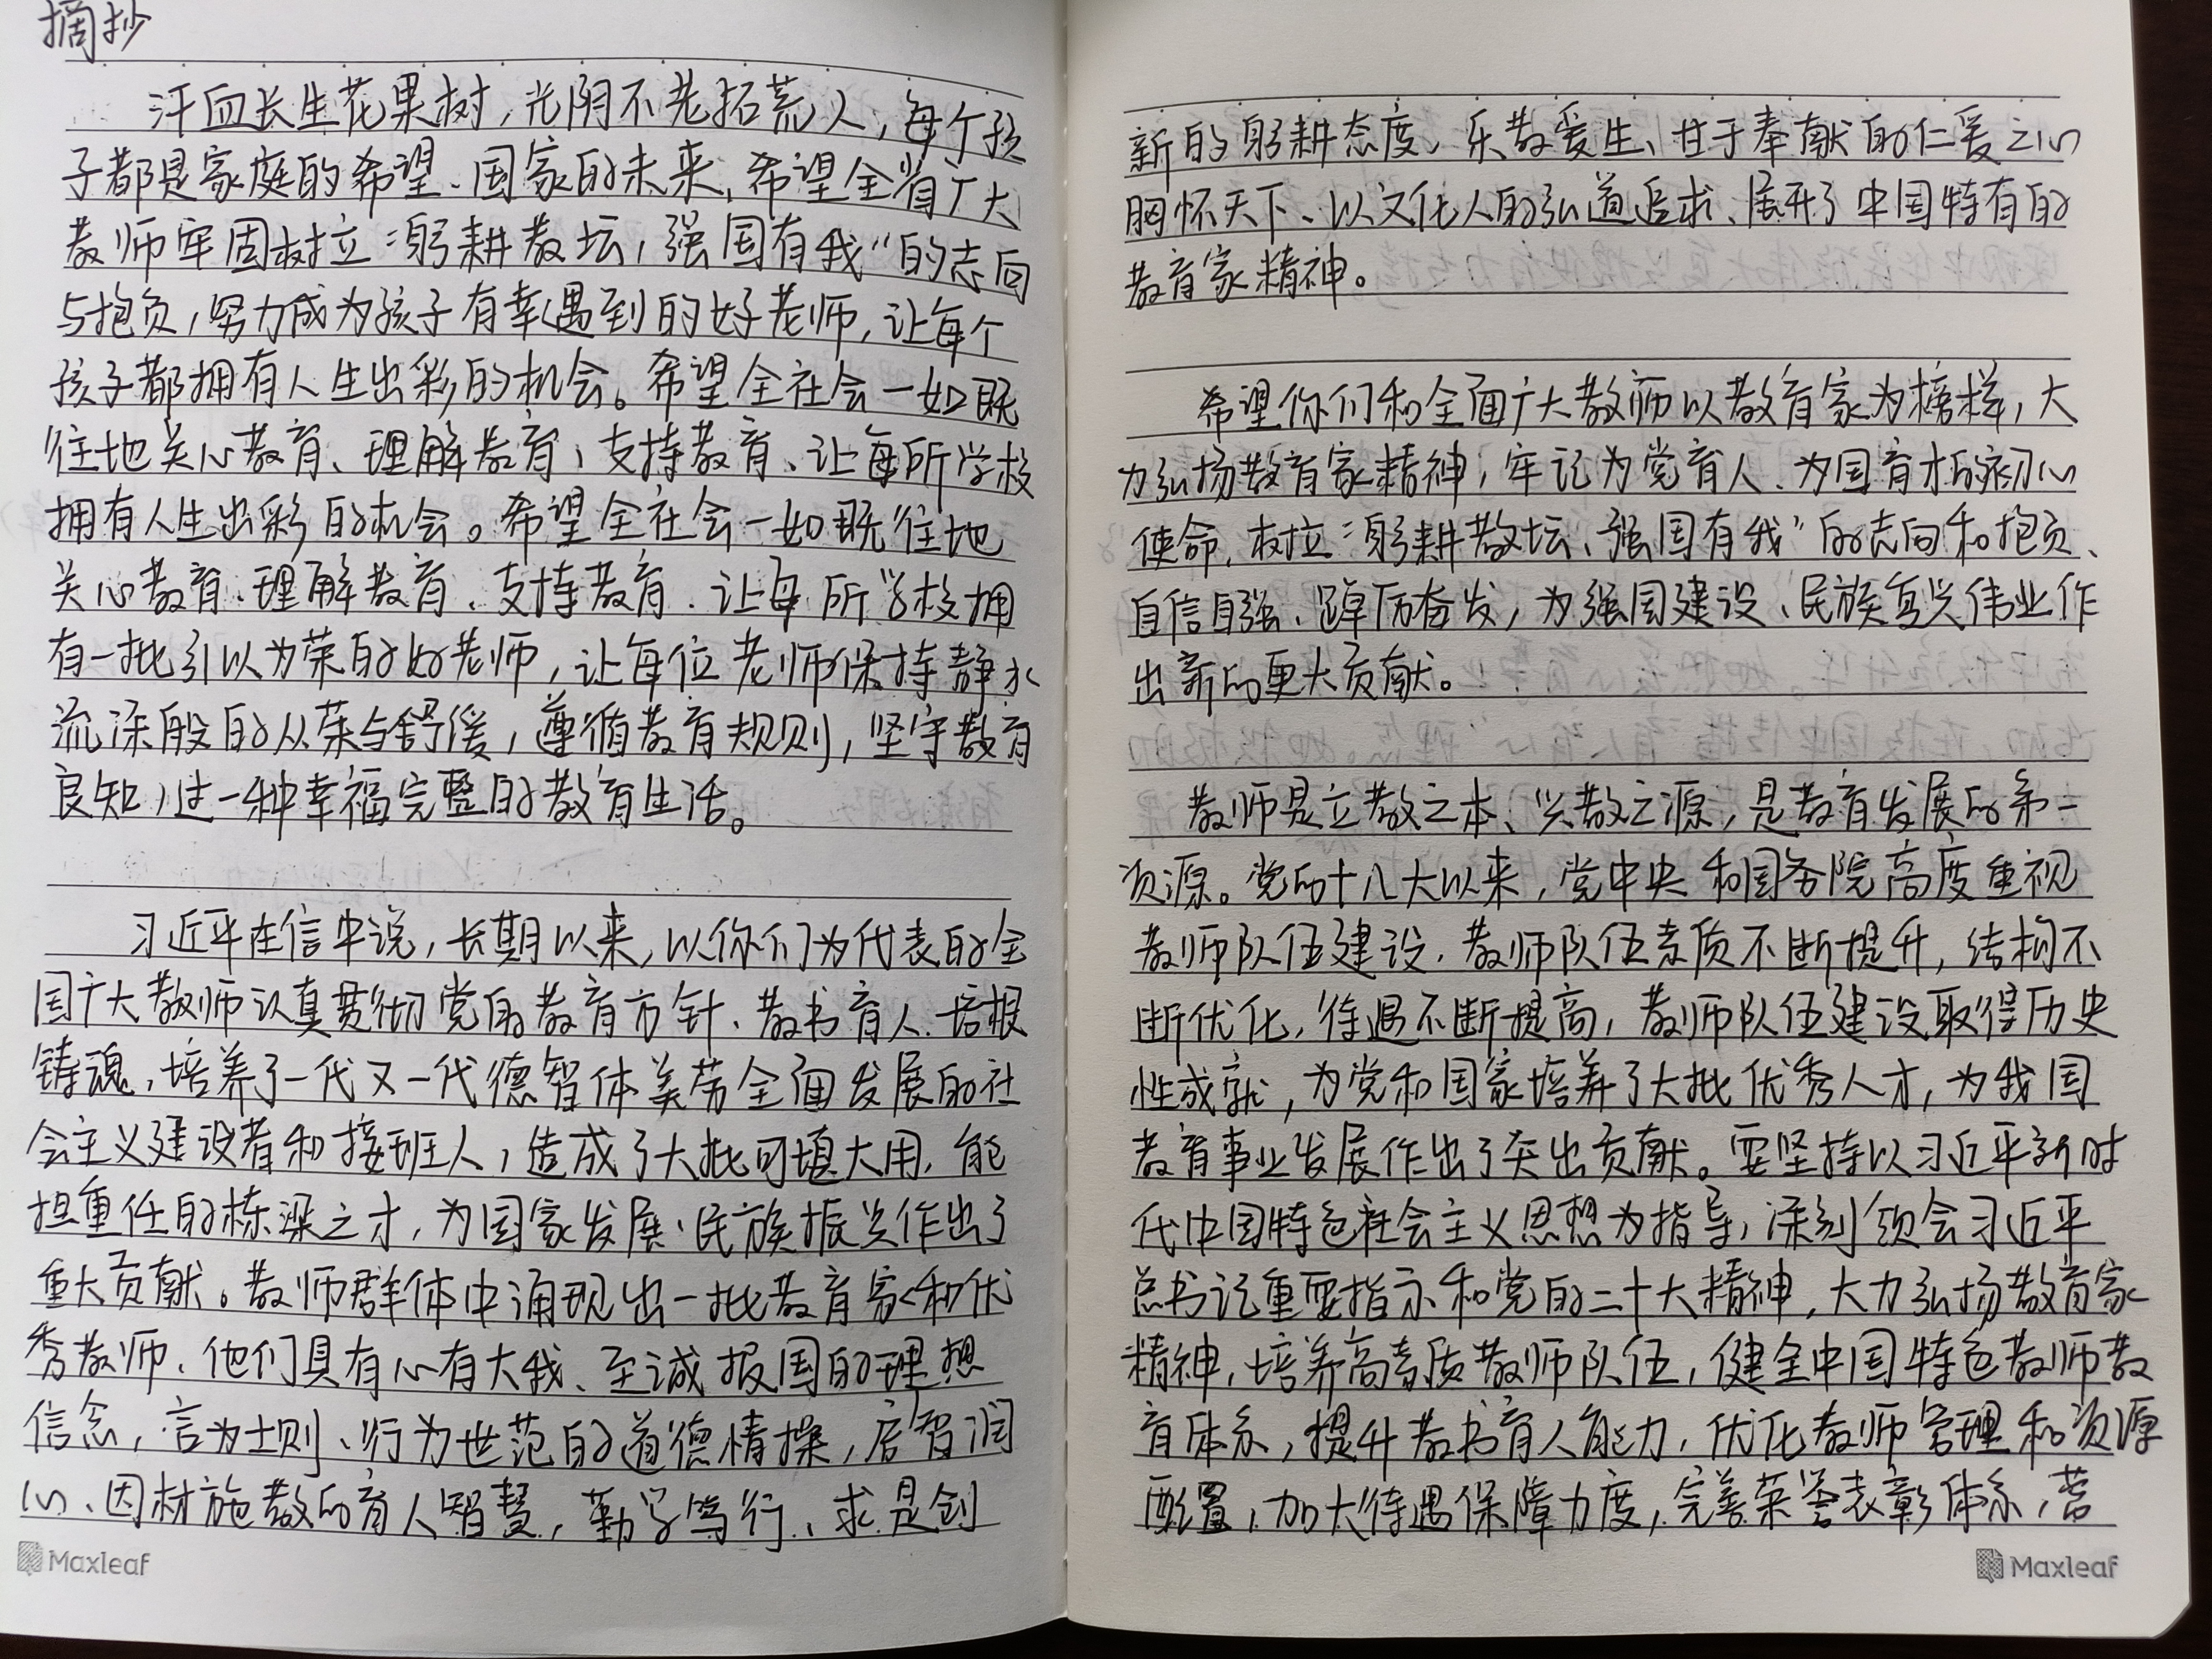 摘抄
汗血长生花果树,光阴不老拓荒人,每个孩
子都是家庭的希望、国家的未来,希望全省广大
教师牢固树立“躬耕教坛,强国有我”的志向
与抱负,努力成为孩子有幸遇到的好老师,让每个
孩子都拥有人生出彩的机会。希望全社会一如既
往地关心教育、理解教育、支持教育、让每所学校
拥有人生出彩的机会。希望全社会一如既往地
关心教育、理解教育、支持教育、让每所学校拥
有一批引以为荣的好老师,让每位老师保持静水
流深般的从荣与舒缓,遵循教育规则,坚守教育
良知,过一种幸福完整的教育生活。
习近平在信中说,长期以来,以你们为代表的全
国广大教师认真贯彻党的教育方针、教书育人、培根
铸魂,培养了一代又一代德智体美劳全面发展的社
会主义建设者和接班人,造成了大批可填大用,能
担重任的栋梁之才,为国家发展、民族振兴作出了
重大贡献。教师群体中涌现出一批教育家和优
秀教师、他们具有心有大我、至诚报国的理想
信念,言为士则、行为世范的道德情操,启智润
心、因材施教的育人智慧,勤学笃行、求是创
新的躬耕态度,乐教爱生、甘于奉献的仁爱之心
胸怀天下、以文化人的弘道追求、展形了中国特有的
教育家精神。
希望你们和全面广大教师以教育家为榜样,大
力弘扬教育家精神,牢记为党育人、为国育才的初心
使命,树立“躬耕教坛、强国有我”的志向和抱负、
自信自强、踔厉奋发,为强国建设、民族复兴伟业作
出新的更大贡献。
教师是立教之本、兴教之源,是教育发展的第一
资源。党的十八大以来,党中央和国务院高度重视
教师队伍建设,教师队伍素质不断提升,结构不
断优化,待遇不断提高,教师队伍建设取得历史
性成就,为党和国家培养了大批优秀人才,为我国
教育事业发展作出了突出贡献。要坚持以习近平新时
代中国特色社会主义思想为指导,深刻领会习近平
总书记重要指示和党的二十大精神,大力弘扬教育家
精神,培养高素质教师队伍,健全中国特色教师教
育体系,提升教书育人能力,优化教师管理和资源
配置,加大待遇保障力度,完善荣誉表彰体系,营
Maxleaf
Maxleaf